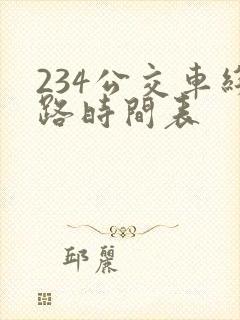 234公交車線
路時間表
邱麗